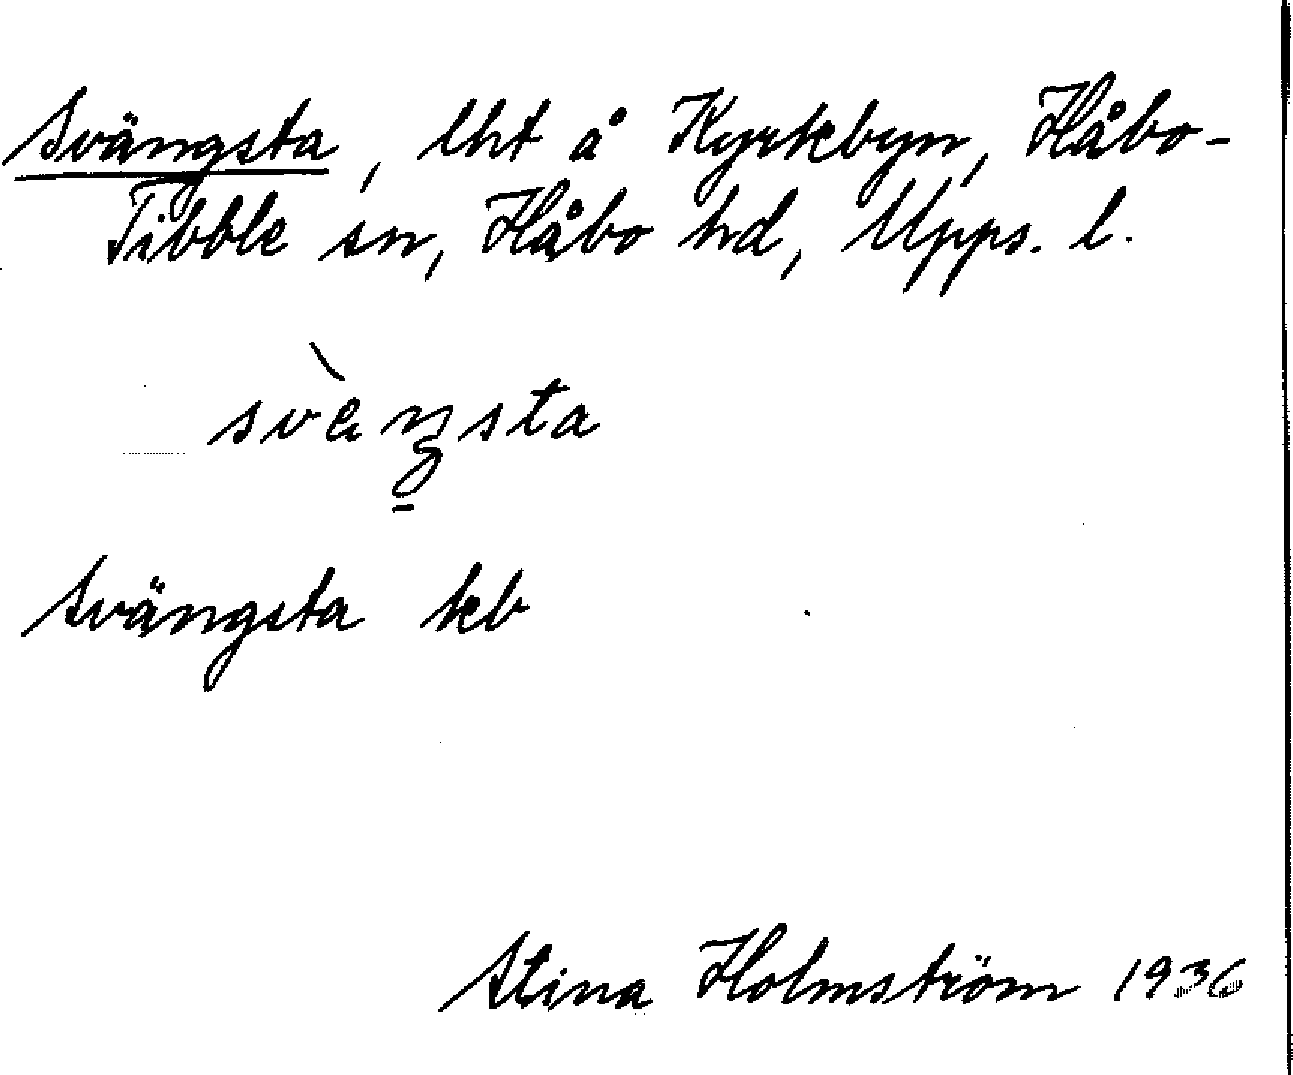 Svängsta, lht å Kyrkbyn, Håbo-
Tibble sn, Håbo hd, Upps. l.
svàŋsta
Svängsta kb
Stina Holmström 1936